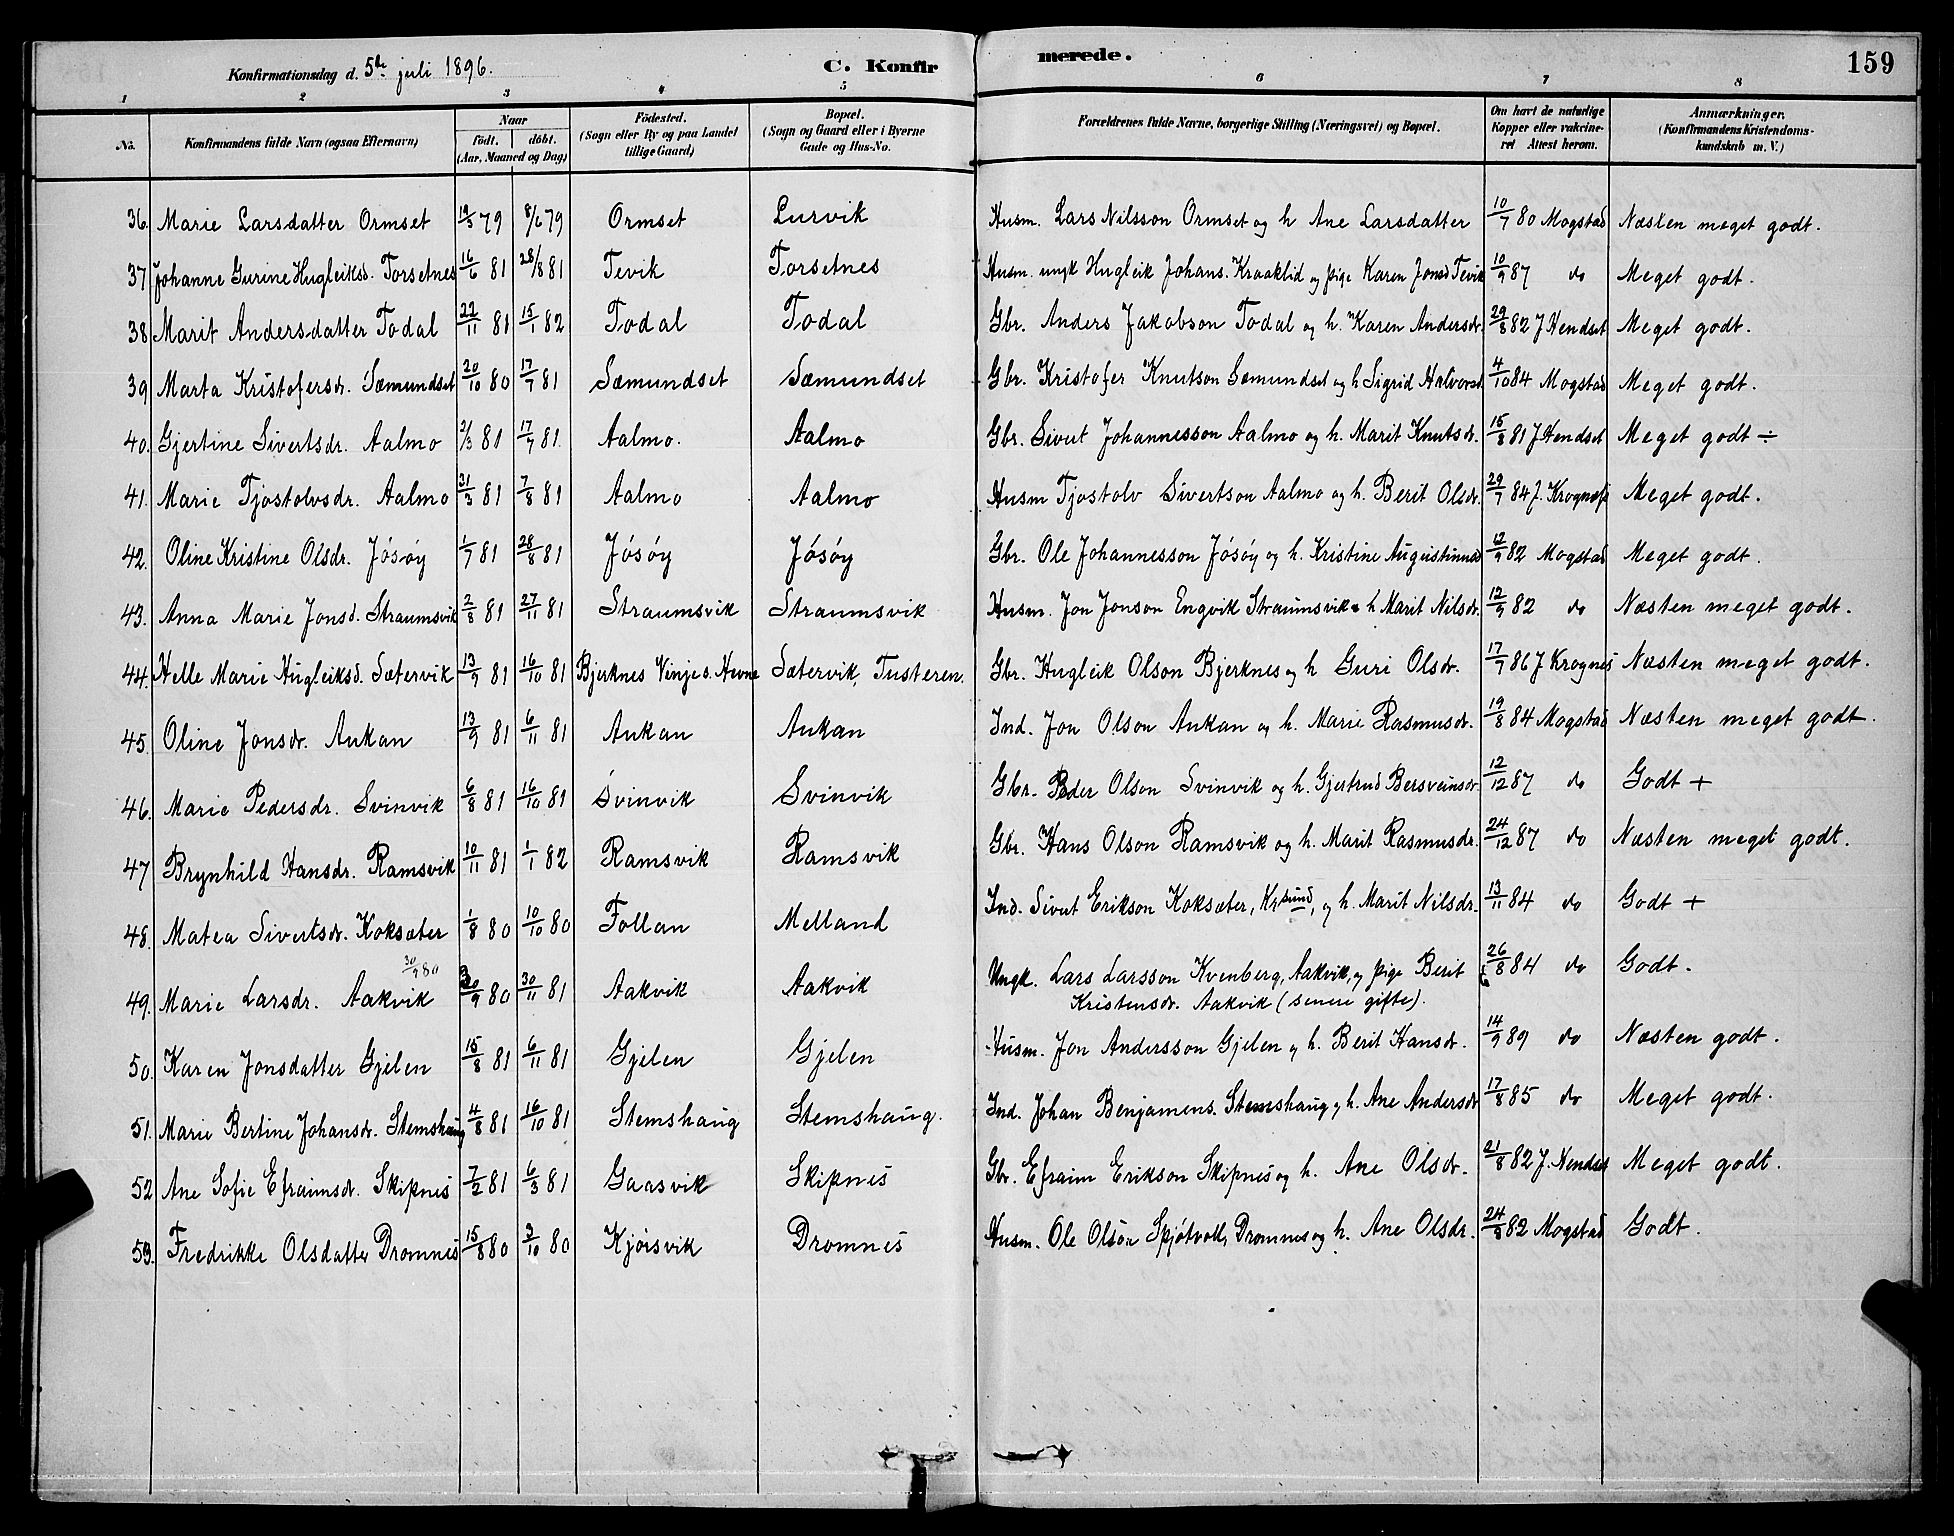 Konfirmationsdag d. 5te juli 1896. C. Konfir merede. 159
1 2 3 4 5 6 7 8
No. Konfirmandens fulde Navn (ogsaa Efternavn) Naar födt. döbt. (Aar, Maaned og Dag) Födested. (Sogn eller By og paa Landet tillige Gaard) Bopæl. (Sogn og Gaard eller i Byerne Gade og Hus-No. Forældrenes fulde Navne, borgerlige Stilling (Næringsvei) og Bopæl. Om havt de naturlige Kopper eller vakcineret Attest herom. Anmærkninger. (Konfirmandens Kristendomskundskab m. V.)
36. Marie Larsdatter Ormset 19/3 79 8/6 79 Ormset Lurvik Husm. Lars Nilsson Ormset og h Ane Larsdatter 10/7 80 Mogstad Næsten meget godt.
37 Johanne Gurine Hugleiksd. Torsetnes 16/6 81 28/8 81 Tevik Torsetnes Husm. ungk Hugleik Johans. Kraaklid og pige Karen Jonsd Tevik 10/9 87 do Meget godt.
38 Marit Andersdatter Todal 22/11 81 15/1 82 Todal Todal Gbr. Anders Jakobson Todal og h. Karen Andersdr. 29/8 82 J Hendset Meget godt.
39 Marta Kristofersdr. Sæmundset 20/10 80 17/7 81 Sæmundset Sæmundset Gbr. Kristofer Knutson Sæmundset og h Sigrid Halvorsd. 4/10 84 Mogstad Meget godt.
40. Gjertine Sivertsdr. Aalmo 2/3 81 17/7 81. Aalmo. Aalmo Gbr. Sivert Johannesson Aalmo og h. Marit Knutsdr. 15/8 81 J Hendset Meget godt ÷
41. Marie Tjostolvsdr. Aalmo 31/3 81 7/8 81 Aalmo Aalmo Husm Tjostolv Sivertson Aalmo og h. Berit Olsdr. 29/7 84 J. Krognes Meget godt.
42. Oline Kristine Olsdr. Jósóy 1/7 81 28/8 81 Jósóy Jósóy Gbr. Ole Johannesson Jósóy og h. Kristine Augustinusd 12/9 82 Mogstad Meget godt.
43. Anna Marie Jonsd. Straumsvik 2/8 81 27/11 81 Straumsvik Straumsvik Husm. Jon Jonson Engvik Straumsvik h Marit Nilsdr. 12/9 82 do Næsten meget godt.
44. Helle Marie Hugleiksd. Sætervik 13/9 81 16/10 81 Bjerknes Vinje s. Hevne Sætervik, Tusteren. Gbr. Hugleik Olson Bjerknes og h Guri Olsdr. 17/7 86 J Krognes Næsten meget godt.
45. Oline Jonsdr. Aukan 13/9 81 6/11 81 Aukan Aukan Ind. Jon Olson Aukan og h. Marie Rasmusdr. 19/8 84 Mogstad Næsten meget godt.
46. Marie Pedersdr. Svinvik 6/8 81 16/10 81 Svinvik Svinvik Gbr. Peder Olson Svinvik og h. Gjertrud Bersveinsdr. 12/12 87 do Godt +
47 Brynhild Hansdr. Ramsvik 10/11 81 1/1 82 Ramsvik Ramsvik Gbr. Hans Olson Ramsvik og h. Marit Rasmusdr. 24/12 87 do Næsten meget godt.
48. Matea Sivertsdr. Koksæter 1/8 80 10/10 80 Follan Melland Ind. Sivert Erikson Koksæter, Krsund, og h. Marit Nilsdr. 13/11 84 do Godt +
30/9 80
49. Marie Larsdr. Aakvik 30/9 80 30/11 81 Aakvik Aakvik Ungk. Lars Larsson Kvenberg, Aakvik, og pige Berit 26/8 84 do Godt.
Kristensdr. Aakvik (senere gifte).
50. Karen Jonsdatter Gjelen 15/8 81 6/11 81 Gjelen Gjelen Husm. Jon Andersson Gjelen og h. Berit Hansdr. 14/9 89 do Næsten godt.
51. Marie Bertine Johansdr. Stemshaug 4/8 81 16/10 81 Stemshaug Stemshaug. Ind. Johan Benjamens. Stemshaug og h. Ane Andersdr 17/8 85 do Meget godt.
52 Ane Sofie Efraimsdr. Skipnes 7/2 81 6/3 81 Gaasvik Skipnes Gbr. Efraim Erikson Skipnes og h. Ane Olsdr. 21/8 82 J. Hendset Meget godt.
53. Fredrikke Olsdatter Dromnes 15/8 80 3/10 80 Kjórsvik Dromnes Husm. Ole Olson Spjótvoll, Dromnes og h. Ane Olsdr. 24/8 82 Mogstad Godt.